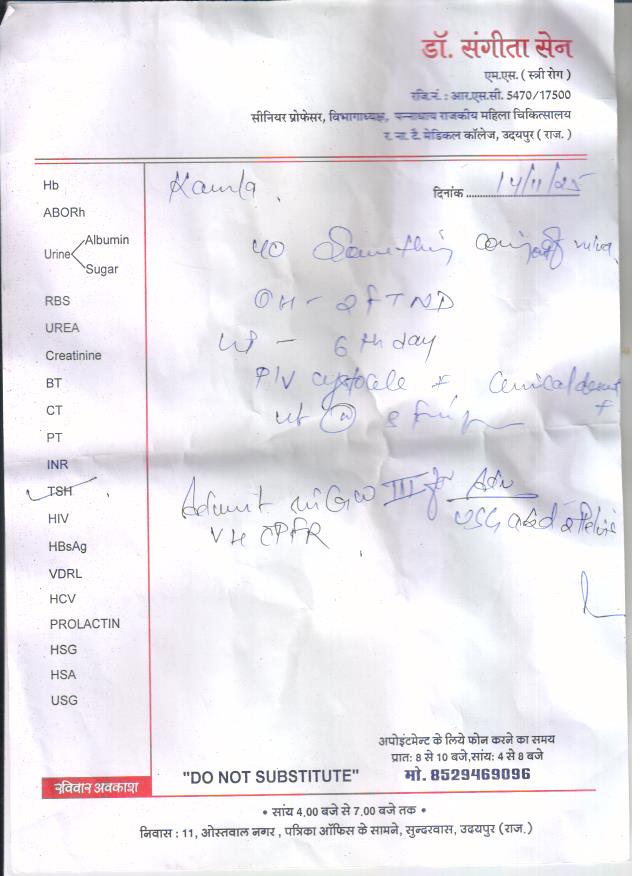 डॉ. संगीता सेन
एम.एस. ( स्त्री रोग )
रजि.नं. : आर.एस.सी. 5470/17500
सीनियर प्रोफेसर, विभागाध्यक्ष, पन्नाधाय राजकीय महिला चिकित्सालय
र. ना. टै. मेडिकल कॉलेज, उदयपुर ( राज. )
Kamla.
दिनांक 14/11/25
Hb
ABORh
Urine Albumin
Sugar
RBS
UREA
Creatinine
BT
CT
PT
INR
TSH
HIV
HBsAg
VDRL
HCV
PROLACTIN
HSG
HSA
USG
Something coming
OH - 2 FTND
6th day
P/V cystocele + Cervical descent +
Admit in GW III for
VH PFR
Adv
USG abd & Pelvis
रविवार अवकाश
"DO NOT SUBSTITUTE"
अपोइंटमेन्ट के लिये फोन करने का समय
प्रात: 8 से 10 बजे,सांय: 4 से 8 बजे
मो. 8529469096
• सांय 4.00 बजे से 7.00 बजे तक •
निवास : 11, ओस्तवाल नगर , पत्रिका ऑफिस के सामने, सुन्दरवास, उदयपुर (राज.)